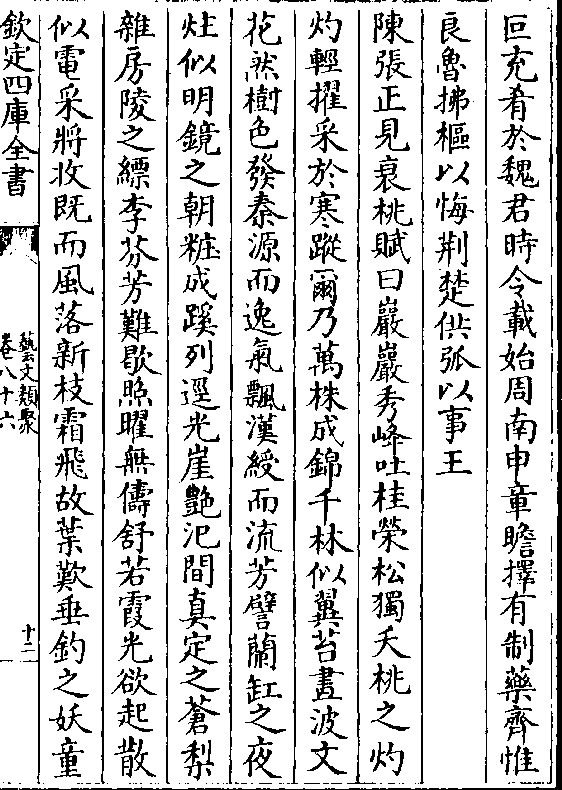 叵充肴於魏君時令載始周南申章瞻擇有制藥齊惟
良魯拂樞以悔荆楚供弧以事王
陳張正見衰桃賦曰巖巖秀峰吐桂榮松獨夭桃之灼
灼輕擢采於寒蹤爾乃萬株成錦千林似翼苔畫波文
花然樹色發秦源而逸氣飄漢綬而流芳譬蘭缸之夜
炷似明鏡之朝粧成蹊列逕光崖艷汜間真定之蒼梨
雜房陵之縹李芬芳難歇照曜無儔舒若霞光欲起散
似電采將收既而風落新枝霜飛故葉歎垂釣之妖童
欽定四庫全書
藝文類聚
卷八十六
十二